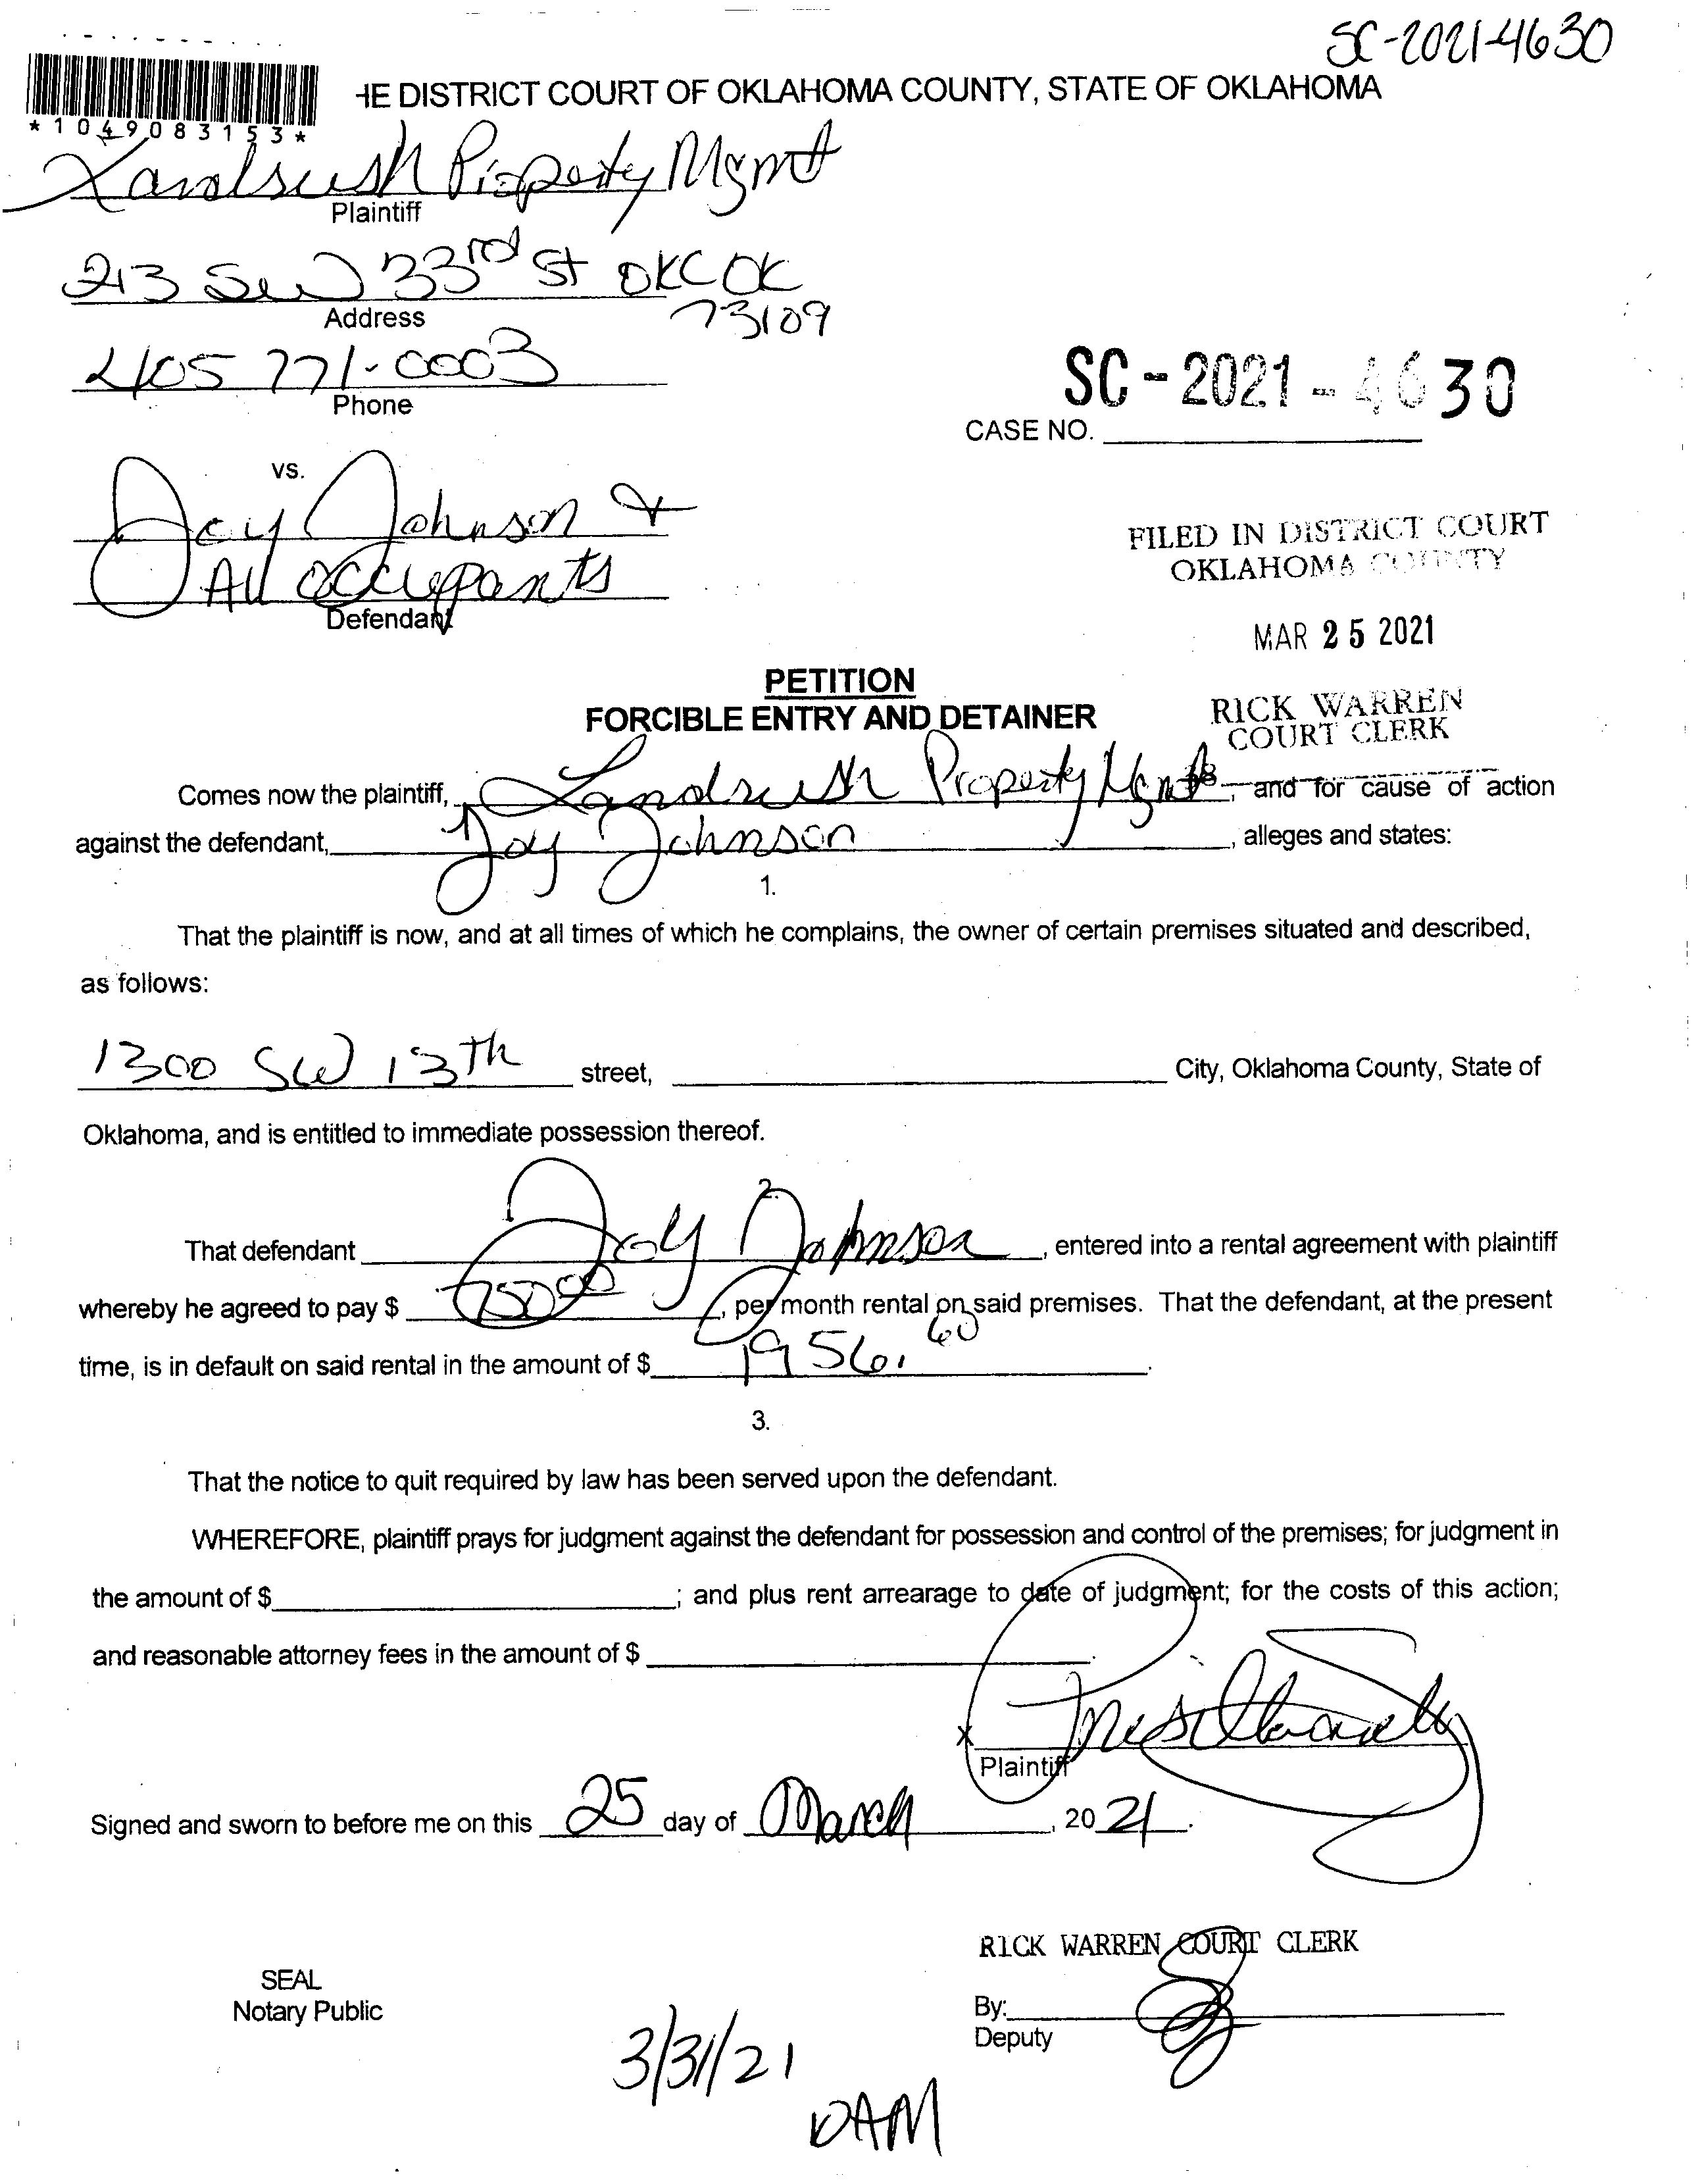 SC-2021-4630
HE DISTRICT COURT OF OKLAHOMA COUNTY, STATE OF OKLAHOMA
*1049083153*
Landrush Property Mgmt
Plaintiff
213 SW 33rd St OKC OK
73109
Address
405 771-0003
Phone
SC-2021-4630
CASE NO.
vs.
Joy Johnson &
All occupants
Defendant
FILED IN DISTRICT COURT
OKLAHOMA COUNTY
MAR 25 2021
RICK WARREN
COURT CLERK
PETITION
FORCIBLE ENTRY AND DETAINER
Comes now the plaintiff, Landrush Property Mgmt, and for cause of action
against the defendant, Joy Johnson, alleges and states:
1.
That the plaintiff is now, and at all times of which he complains, the owner of certain premises situated and described,
as follows:
1300 SW 13Th street, City, Oklahoma County, State of
Oklahoma, and is entitled to immediate possession thereof.
2.
That defendant Joy Johnson, entered into a rental agreement with plaintiff
whereby he agreed to pay $ 750.00, per month rental on said premises. That the defendant, at the present
time, is in default on said rental in the amount of $ 1956.60.
3.
That the notice to quit required by law has been served upon the defendant.
WHEREFORE, plaintiff prays for judgment against the defendant for possession and control of the premises; for judgment in
the amount of $ ; and plus rent arrearage to date of judgment; for the costs of this action;
and reasonable attorney fees in the amount of $ .
x
Plaintiff
Signed and sworn to before me on this 25 day of March, 2021.
RICK WARREN COURT CLERK
SEAL
Notary Public
By:
Deputy
3/31/21
DAM